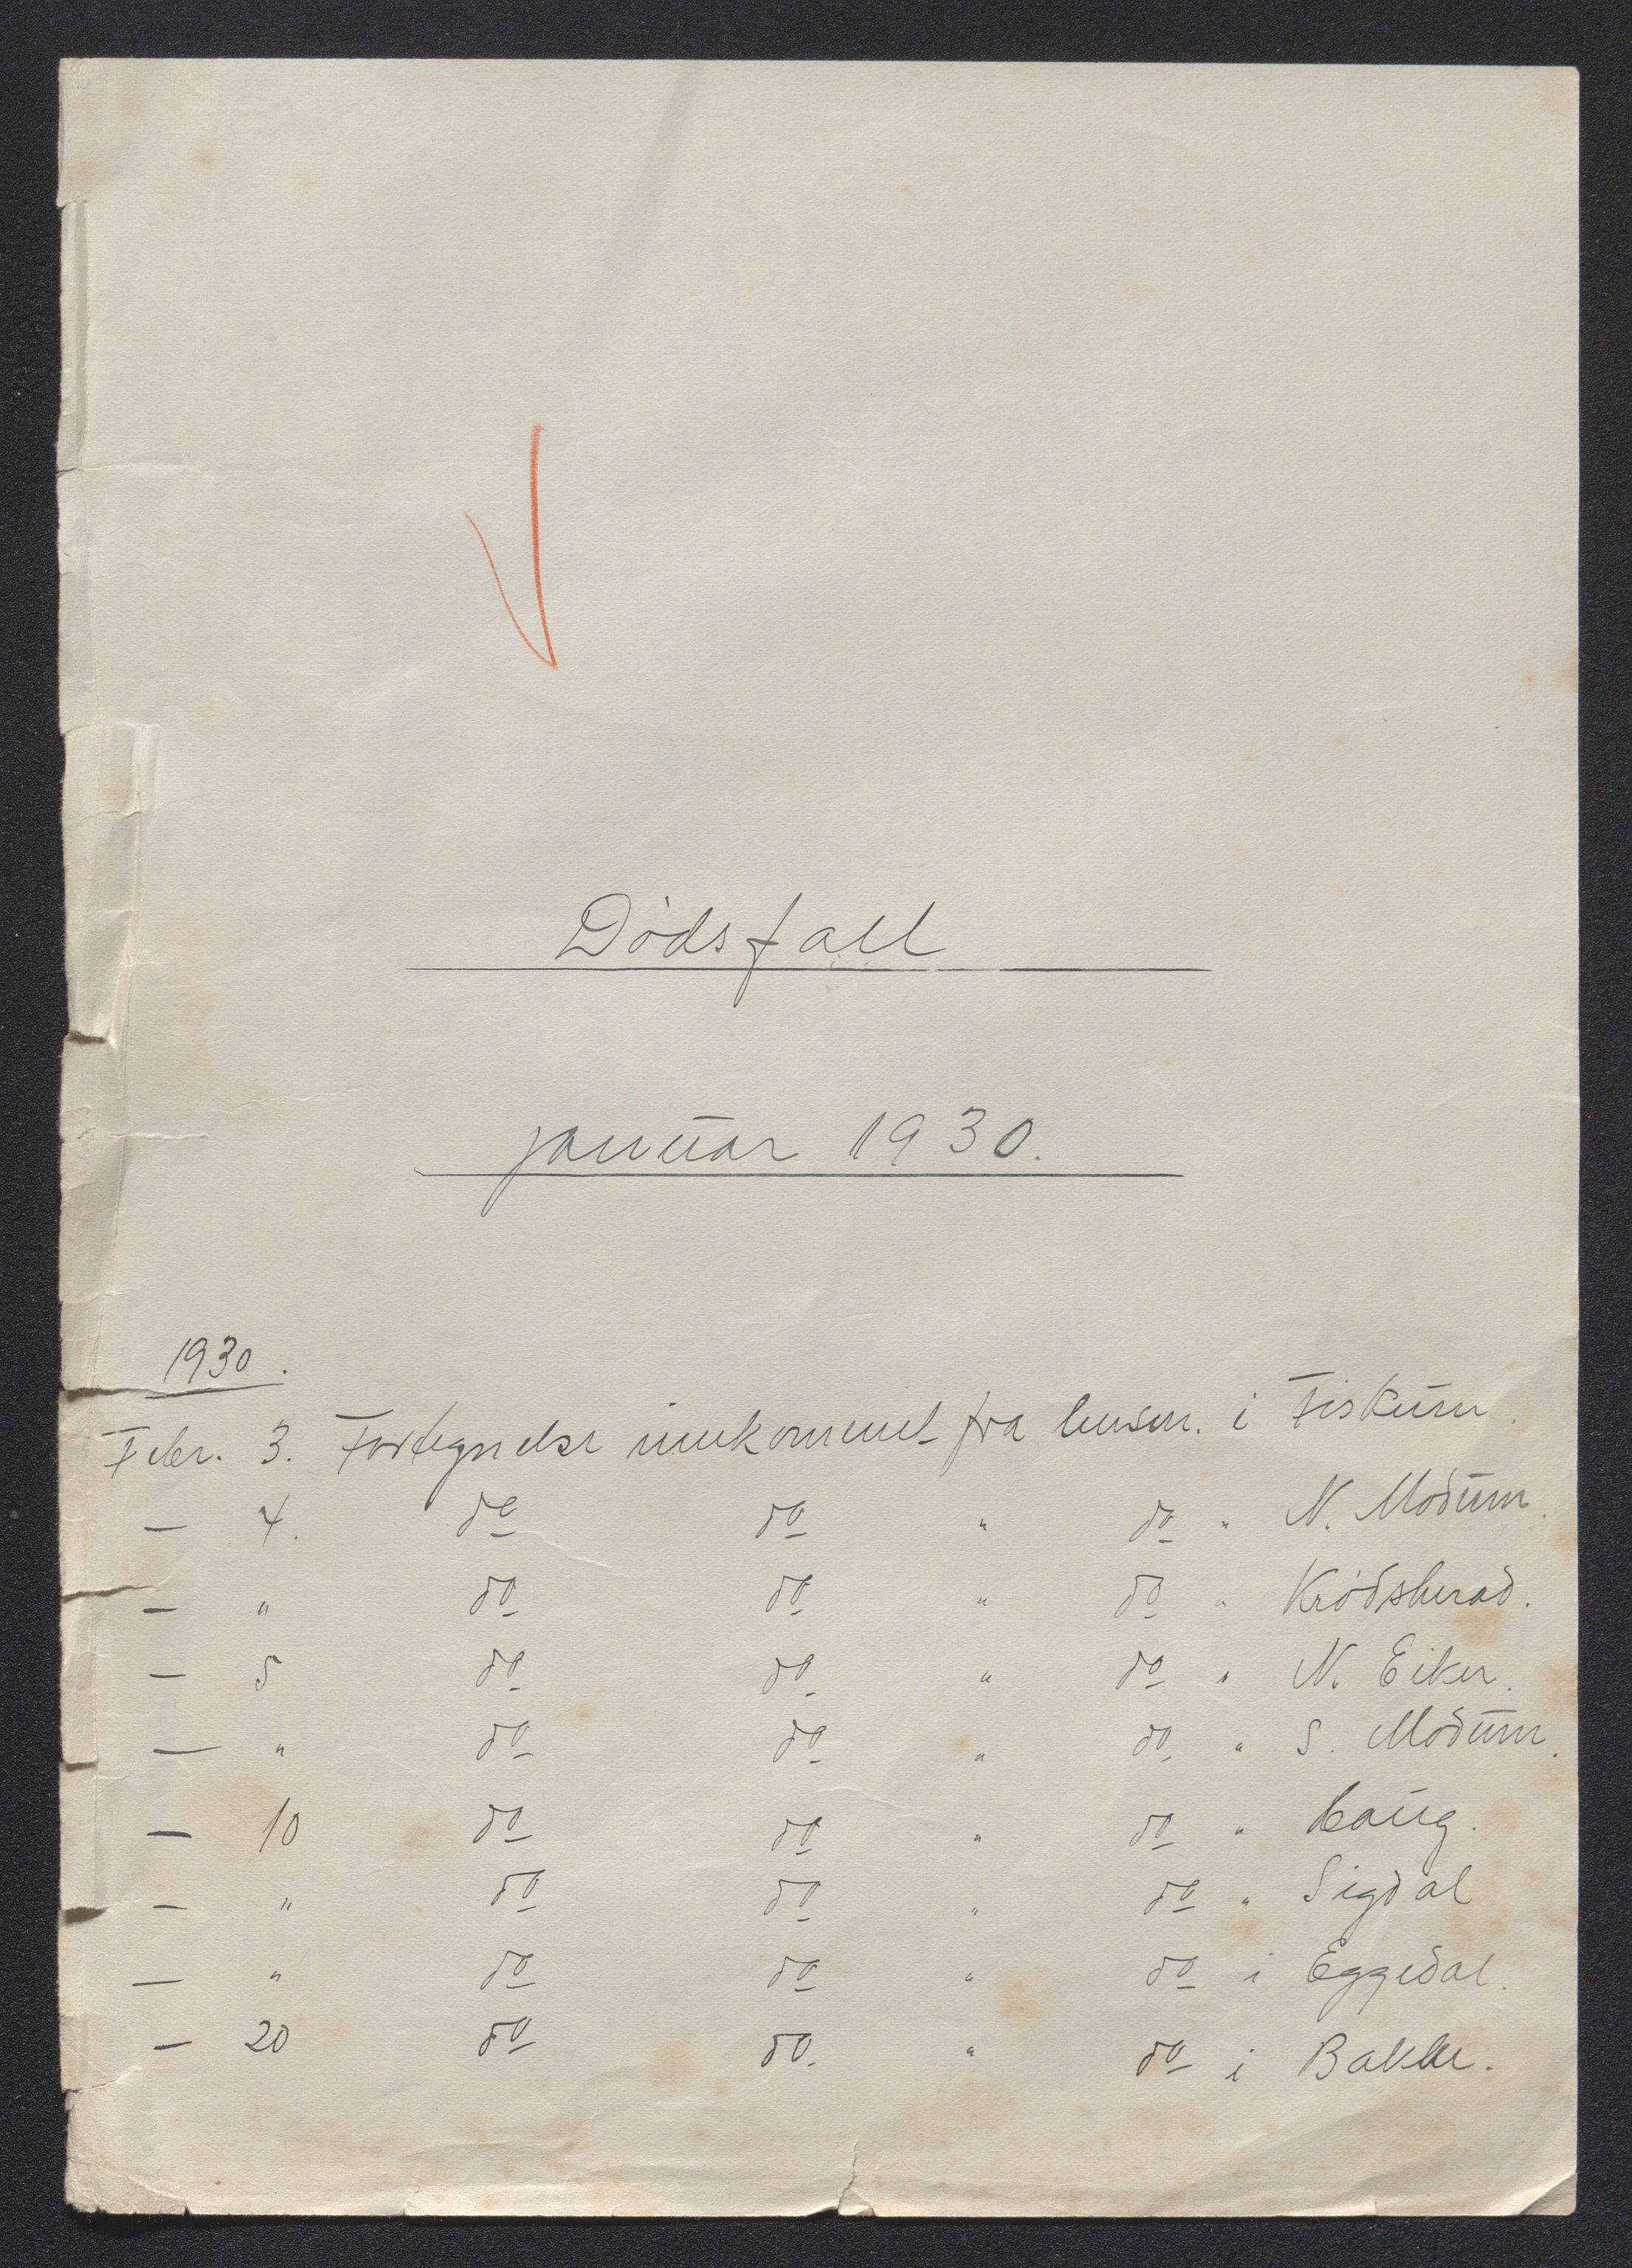 Dødsfall
januar 1930.
1930.
Febr. 3. Fortegnelse innkommet fra lensm. i Fiskum.
— 4. do do " do " N. Modum.
— " do do " do " Krødsherad.
— 5 do do " do " N. Eiker.
— " do do " do " S. Modum.
— 10 do do " do " Haug.
— " do do " do " Sigdal
— " do do " do i Eggedal.
— 20 do do. " do i Bakke.